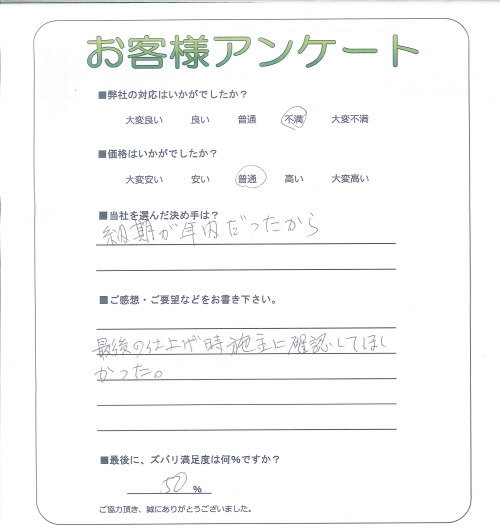 お客様アンケート
■弊社の対応はいかがでしたか？
大変良い 良い 普通 不満 大変不満
■価格はいかがでしたか？
大変安い 安い 普通 高い 大変高い
■当社を選んだ決め手は？
納期が年内だったから
■ご感想・ご要望などをお書き下さい。
最後の仕上げ時施主に確認してほし
かった。
■最後に、ズバリ満足度は何%ですか？
50 %
ご協力頂き、誠にありがとうございました。